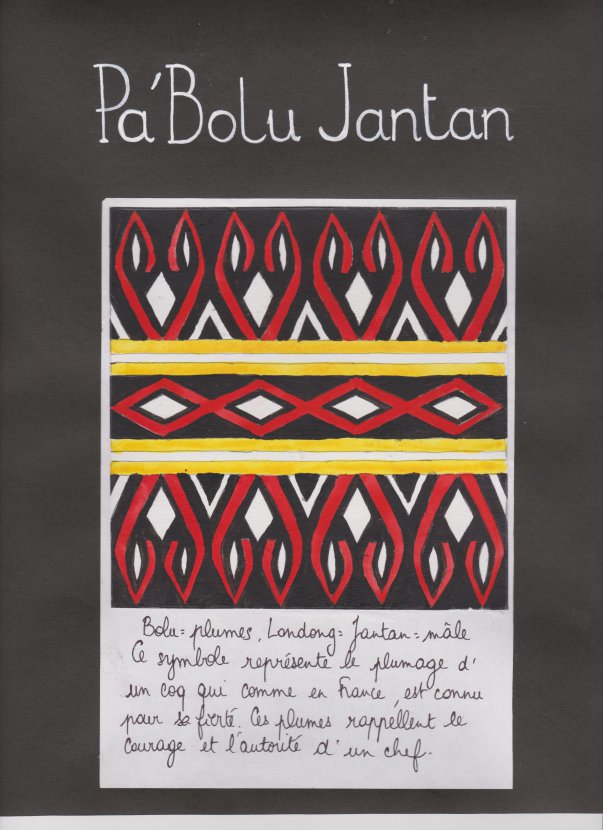 Pa'Bolu Jantan
Bolu = plumes, Londong = Jantan = mâle
Ce symbole représente le plumage d'
un coq qui comme en France, est connu
pour sa fierté. Ces plumes rappellent le
courage et l'autorité d'un chef.